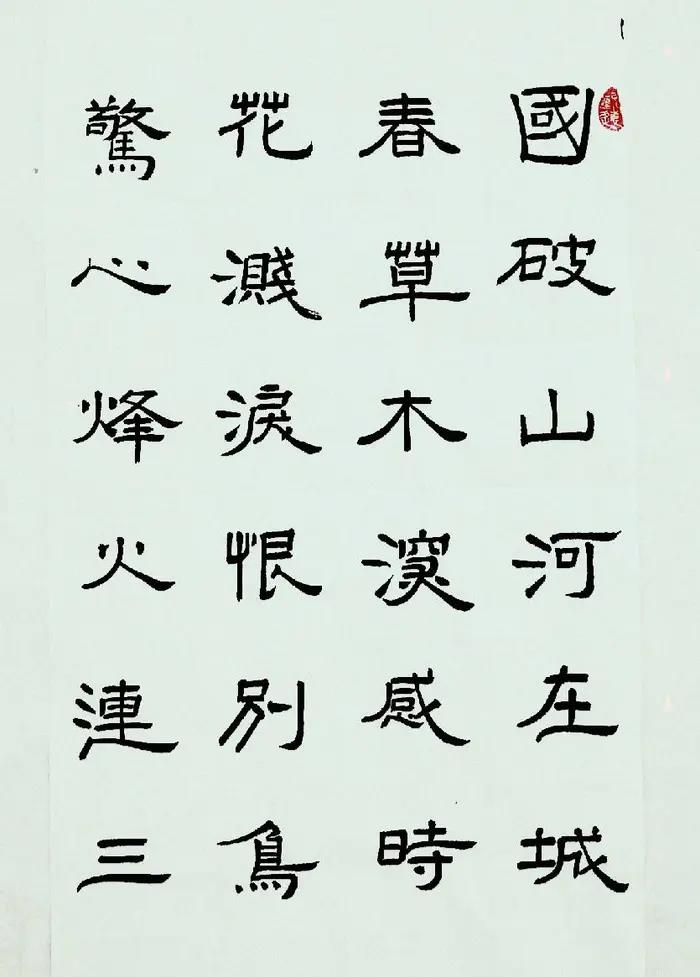 國破山河在城
春草木深感時
花濺淚恨別鳥
驚心烽火連三